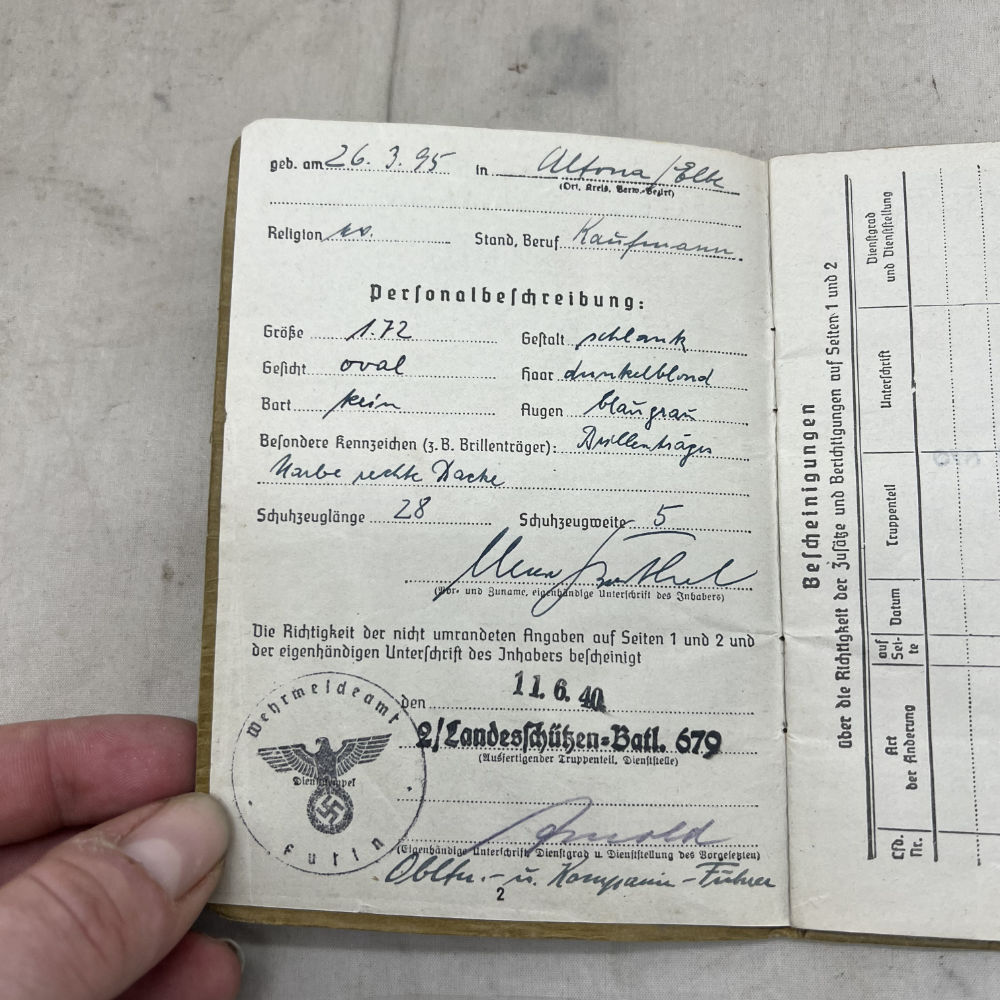 geb. am 26. 3. 95 in Altona / Elbe
(Ort, Kreis, Verw.-Bezirk)
Religion ev. Stand, Beruf Kaufmann
Personalbeschreibung:
Größe 1.72 Gestalt schlank
Gesicht oval Haar dunkelblond
Bart kein Augen blaugrau
Besondere Kennzeichen (z. B. Brillenträger): Brillenträger
Narbe rechte Backe
Schuhzeuglänge 28 Schuhzeugweite 5
(Vor- und Zuname, eigenhändige Unterschrift des Inhabers)
Die Richtigkeit der nicht umrandeten Angaben auf Seiten 1 und 2 und
der eigenhändigen Unterschrift des Inhabers bescheinigt
den 11. 6. 40
2/Landesschützen-Batl. 679
(Ausfertigender Truppenteil, Dienststelle)
Wehrmeldeamt
Dienststempel
Eutin
Arnold
(Eigenhändige Unterschrift, Dienstgrad u. Dienststellung des Vorgesetzten)
Obltn.- u. Kompanie-Führer
2
Bescheinigungen
über die Richtigkeit der Zusätze und Berichtigungen auf Seiten 1 und 2
Lfd. Nr.
Art der Änderung
auf Sei-te
Datum
Truppenteil
Unterschrift
Dienstgrad und Dienststellung